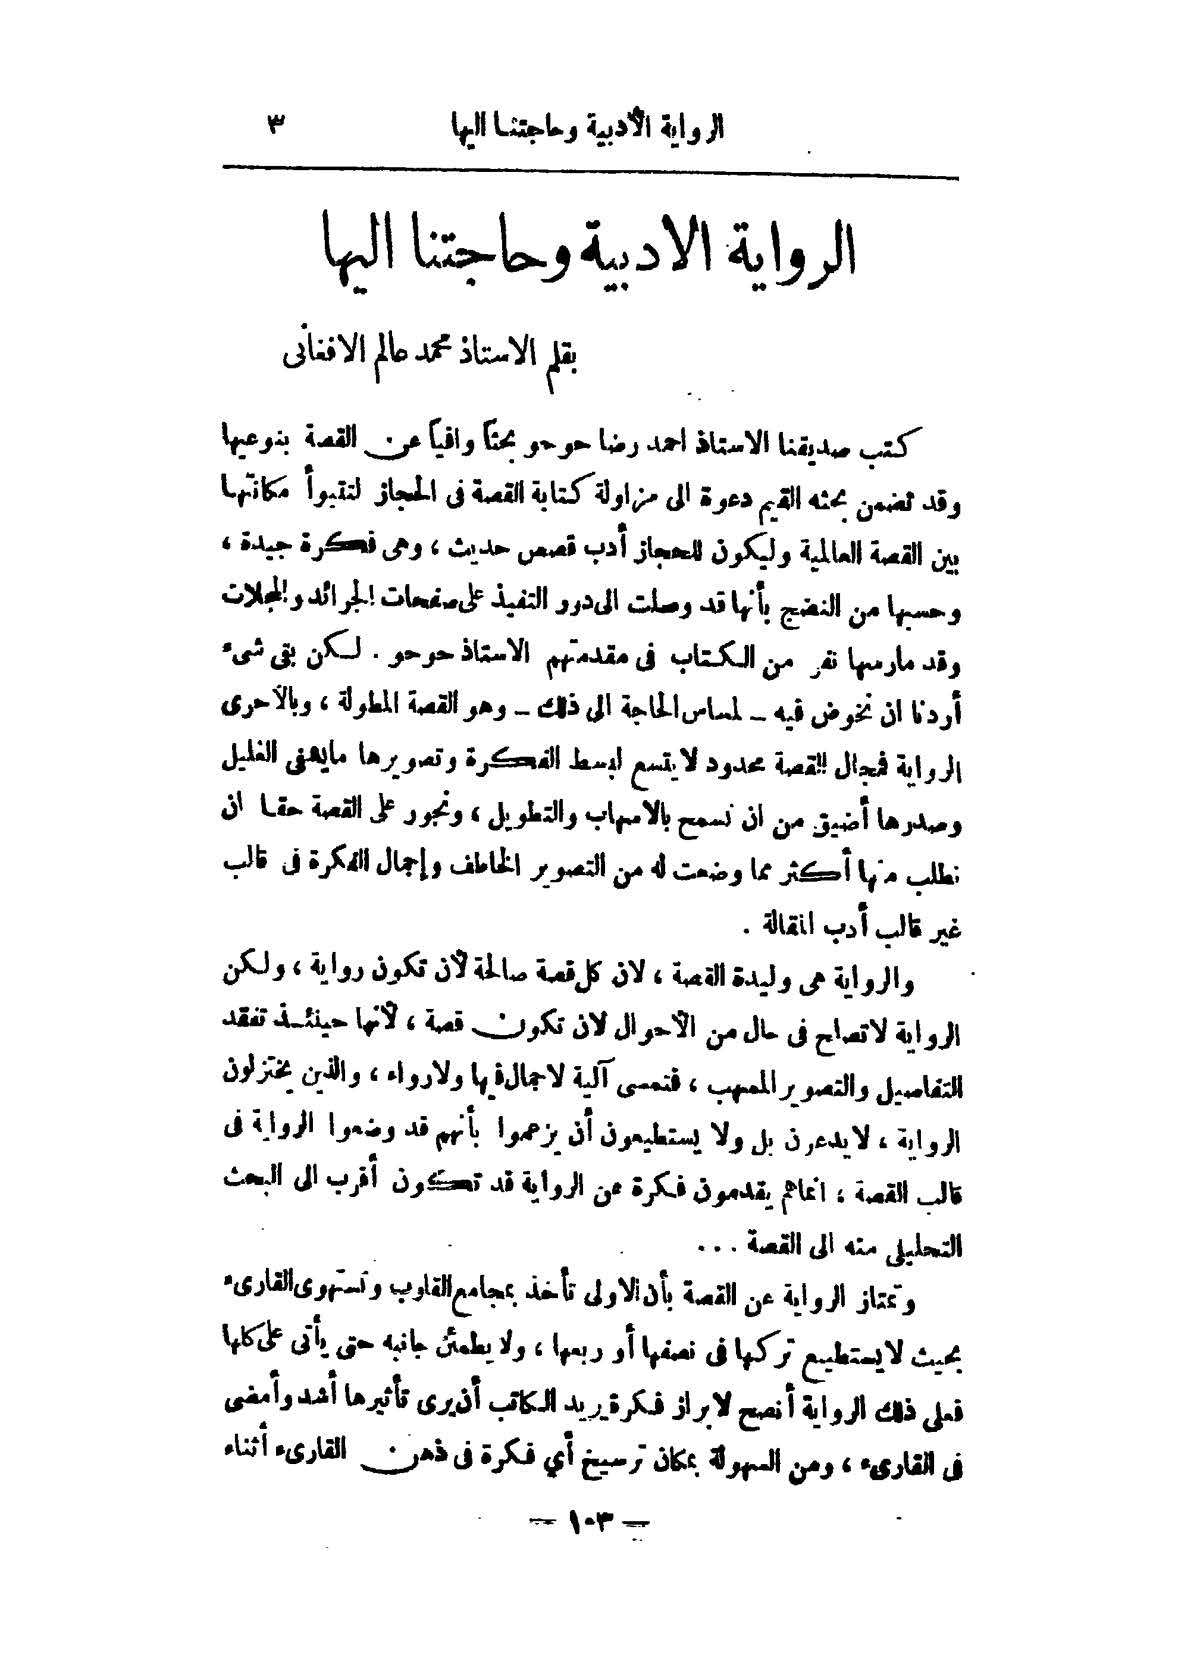 الرواية الأدبية وحاجتنا اليها ٣
الرواية الادبية وحاجتنا اليها
بقلم الاستاذ محمد عالم الافغانى
كتب صديقنا الاستاذ احمد رضا حوحو بحثاً وافياً عن القصة بنوعيها
وقد تضمن بحثه القيم دعوة الى مزاولة كتابة القصة فى الحجاز لتتبوأ مكانتها
بين القصة العالمية وليكون للحجاز أدب قصص حديث ، وهى فكرة جيدة ،
وحسبها من النضج بأنها قد وصلت الى دور التنفيذ على صفحات الجرائد والمجلات
وقد مارسها نفر من الكتاب فى مقدمتهم الاستاذ حوحو . لكن بقى شىء
أردنا ان نخوض فيه – لمساس الحاجة الى ذلك – وهو القصة المطولة ، وبالأحرى
الرواية فمجال القصة محدود لا يتسع لبسط الفكرة وتصويرها مايشفى الغليل
وصدرها أضيق من ان تسمح بالاسهاب والتطويل ، ونجور على القصة حقا ان
نطلب منها أكثر مما وضعت له من التصوير الخاطف وإجمال الفكرة فى قالب
غير قالب أدب المقالة .
والرواية هى وليدة القصة ، لان كل قصة صالحة لأن تكون رواية ، ولكن
الرواية لا تصلح فى حال من الأحوال لان تكون قصة ، لأنها حينئذ تفقد
التفاصيل والتصوير المسهب ، فتمسى آلية لاجمال فيها ولا رواء ، والذين يختزلون
الرواية ، لا يدعون بل ولا يستطيعون أن يزعموا بأنهم قد وضعوا الرواية فى
قالب القصة ، انما هم يقدمون فكرة عن الرواية قد تكون أقرب الى البحث
التحليلى منه الى القصة ...
وتمتاز الرواية عن القصة بأن الاولى تأخذ بمجامع القلوب وتستهوى القارىء
بحيث لا يستطيع تركها فى نصفها أو ربعها ، ولا يطمئن جانبه حتى يأتى على كلها
فعلى ذلك الرواية أنصح لابراز فكرة يريد الكاتب أن يرى تأثيرها أشد وأمضى
فى القارىء ، ومن السهولة بمكان ترسيخ أي فكرة فى ذهن القارىء أثناء
— ١٠٣ —